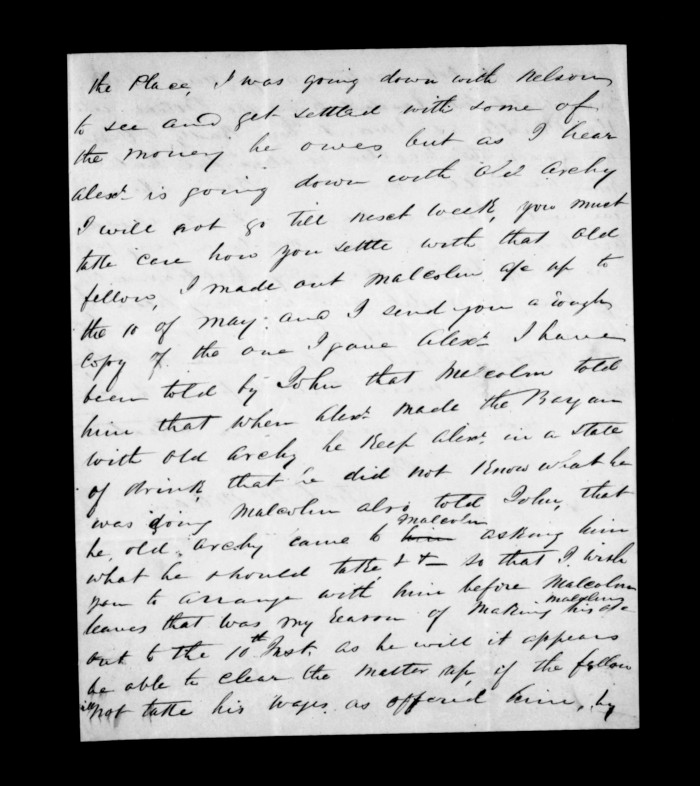 the Place, I was going down with Nelson
to see and get settled with some of
the money he owes, but as I hear
Alexr is going down with Old Archy
I will not go till next week, you must
take care how you settle with that old
fellow, I made out Malcolm a/c up to
the 10 of May. and I send you a rough
copy of the one I gave Alexr I have
been told by John that Malcolm told
him that when Alexr made the Bargan
with Old Archy he Keep Alexr in a state
of drink, that he did not know what he
was doing Malcolm also told John, that
he, old, Archy came to him Malcolm asking him
what he should take so that I wish
you to arrange with him before Malcolm
leaves that was my reason of making Malcolms his a/c
out to the 10th Inst. as he will it appears
be able to clear the matter up, if the fellow
will not take his wages as offered him, by